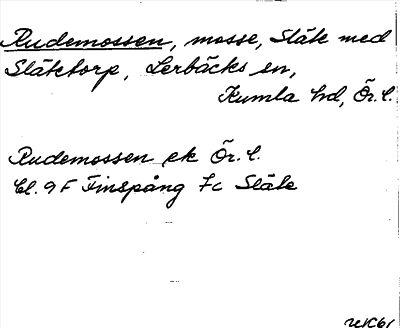 Rudemossen, mosse, Släte med
Slätetorp, Lerbäcks sn,
Kumla hd, Ör. l.
Rudemossen ek Ör. l.
bl. 9F Finspång 7c Släte